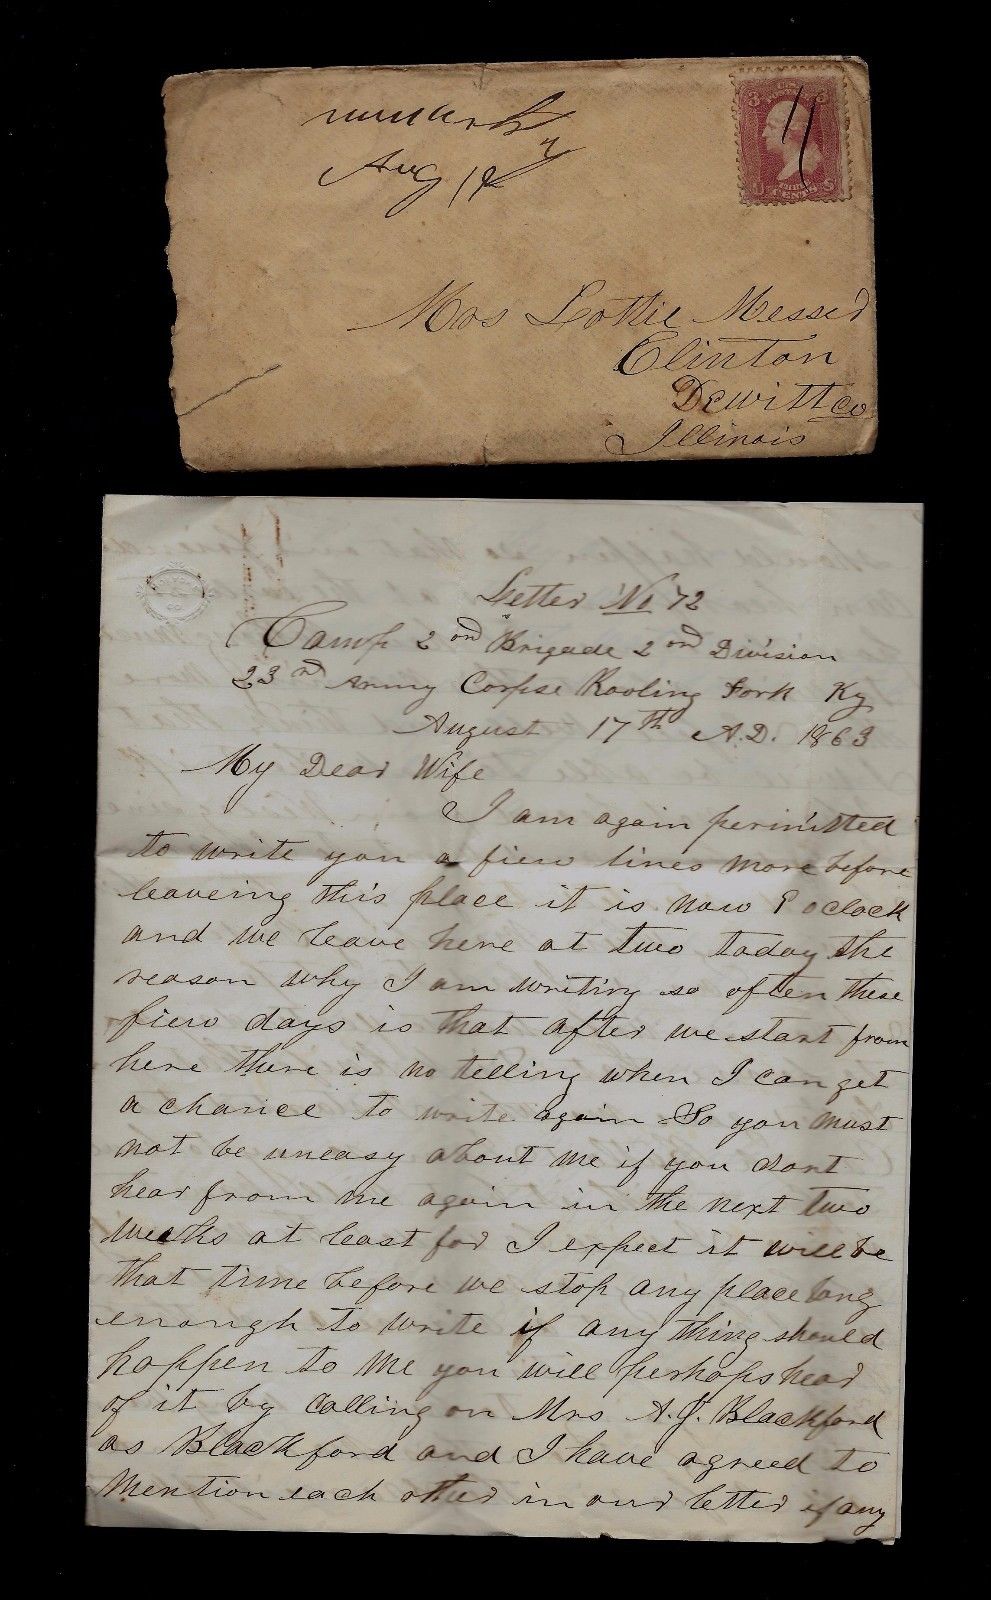 Aug 18
U.S. POSTAGE
3 3
U THREE CENTS S
Mrs Lottie Messer
Clinton
Dewitt co
Illinois
Letter No 72
Camp 2ond Brigade 2ond Division
23rd Army Corpse Rooling Fork Ky
August 17th A.D. 1863
My Dear Wife
I am again permitted
to write you a fiew lines more before
leaveing this place it is now 9 oclock
and we leave here at two today the
reason why I am writing so often these
fiew days is that after we start from
here there is no telling when I can get
a chance to write again So you must
not be uneasy about me if you dont
hear from me again in the next two
weeks at least for I expect it will be
that time before we stop any place long
enough to write if any thing should
happen to me you will perhaps hear
of it by calling on Mrs A.J. Blackford
as Blackford and I have agreed to
mention each other in our letter if any